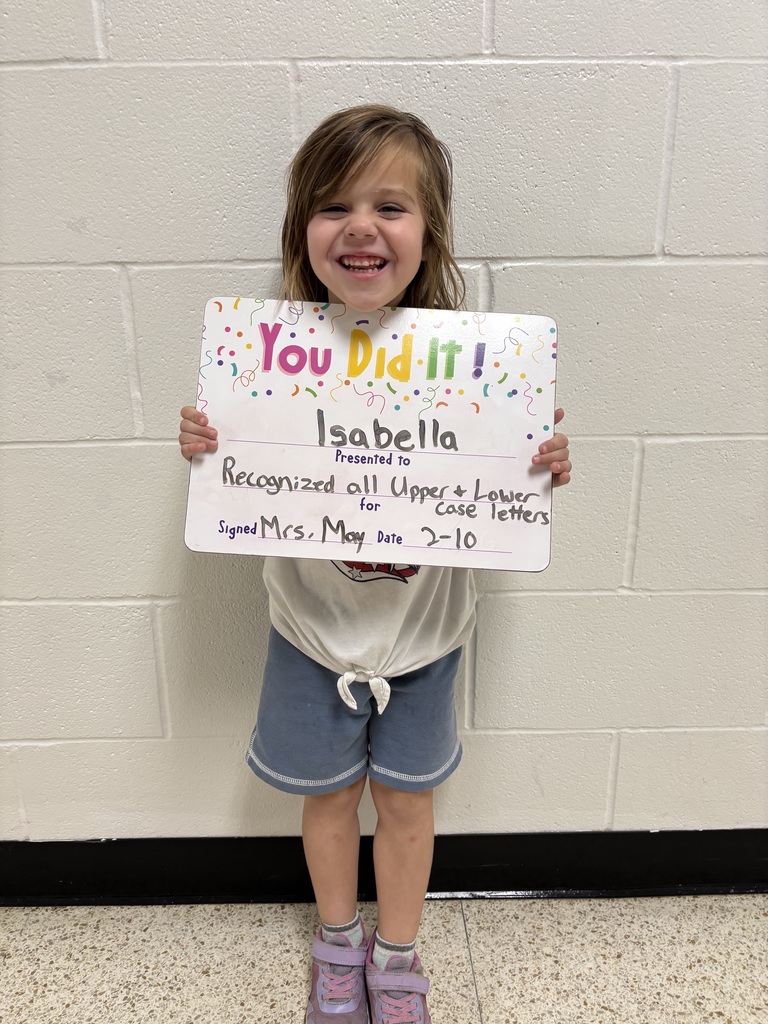 You Did It!
Isabella
Presented to
Recognized all Upper + Lower
case letters
for
Signed Mrs. May Date 2-10